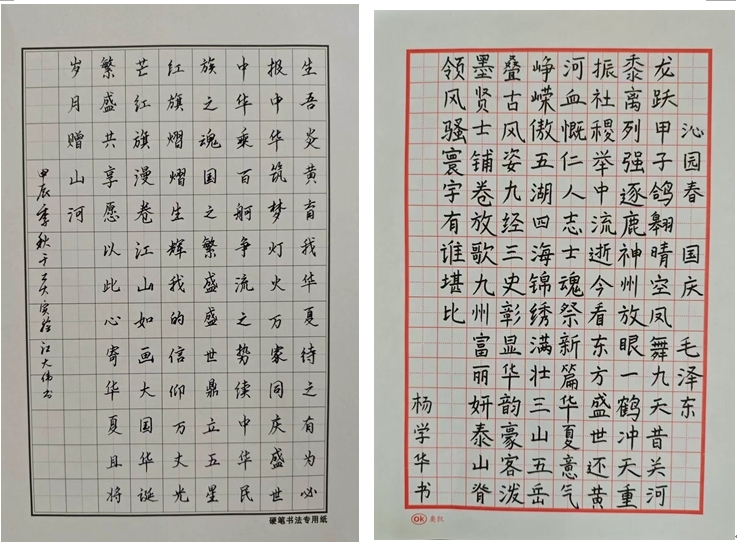 生吾炎黄育我华夏待之有为必
报中华筑梦灯火万家同庆盛世
中华乘百舸争流之势续中华民
族之魂国之繁盛盛世鼎立五星
红旗熠熠生辉我的信仰万丈光
芒红旗漫卷江山如画大国华诞
繁盛共享愿以此心寄华夏且将
岁月赠山河
甲辰季秋于实验江大伟书
硬笔书法专用纸
沁园春 国庆 毛泽东
龙跃甲子鸽翱晴空凤舞九天昔关河
黍离列强逐鹿神州放眼一鹤冲天重
振社稷举中流逝今看东方盛世还黄
河血慨仁人志士魂祭新篇华夏意气
峥嵘傲五湖四海锦绣满壮三山五岳
叠古风姿九经三史彰显华韵豪客泼
墨贤士铺卷放歌九州富丽妍泰山脊
领风骚寰宇有谁堪比
杨学华书
OK